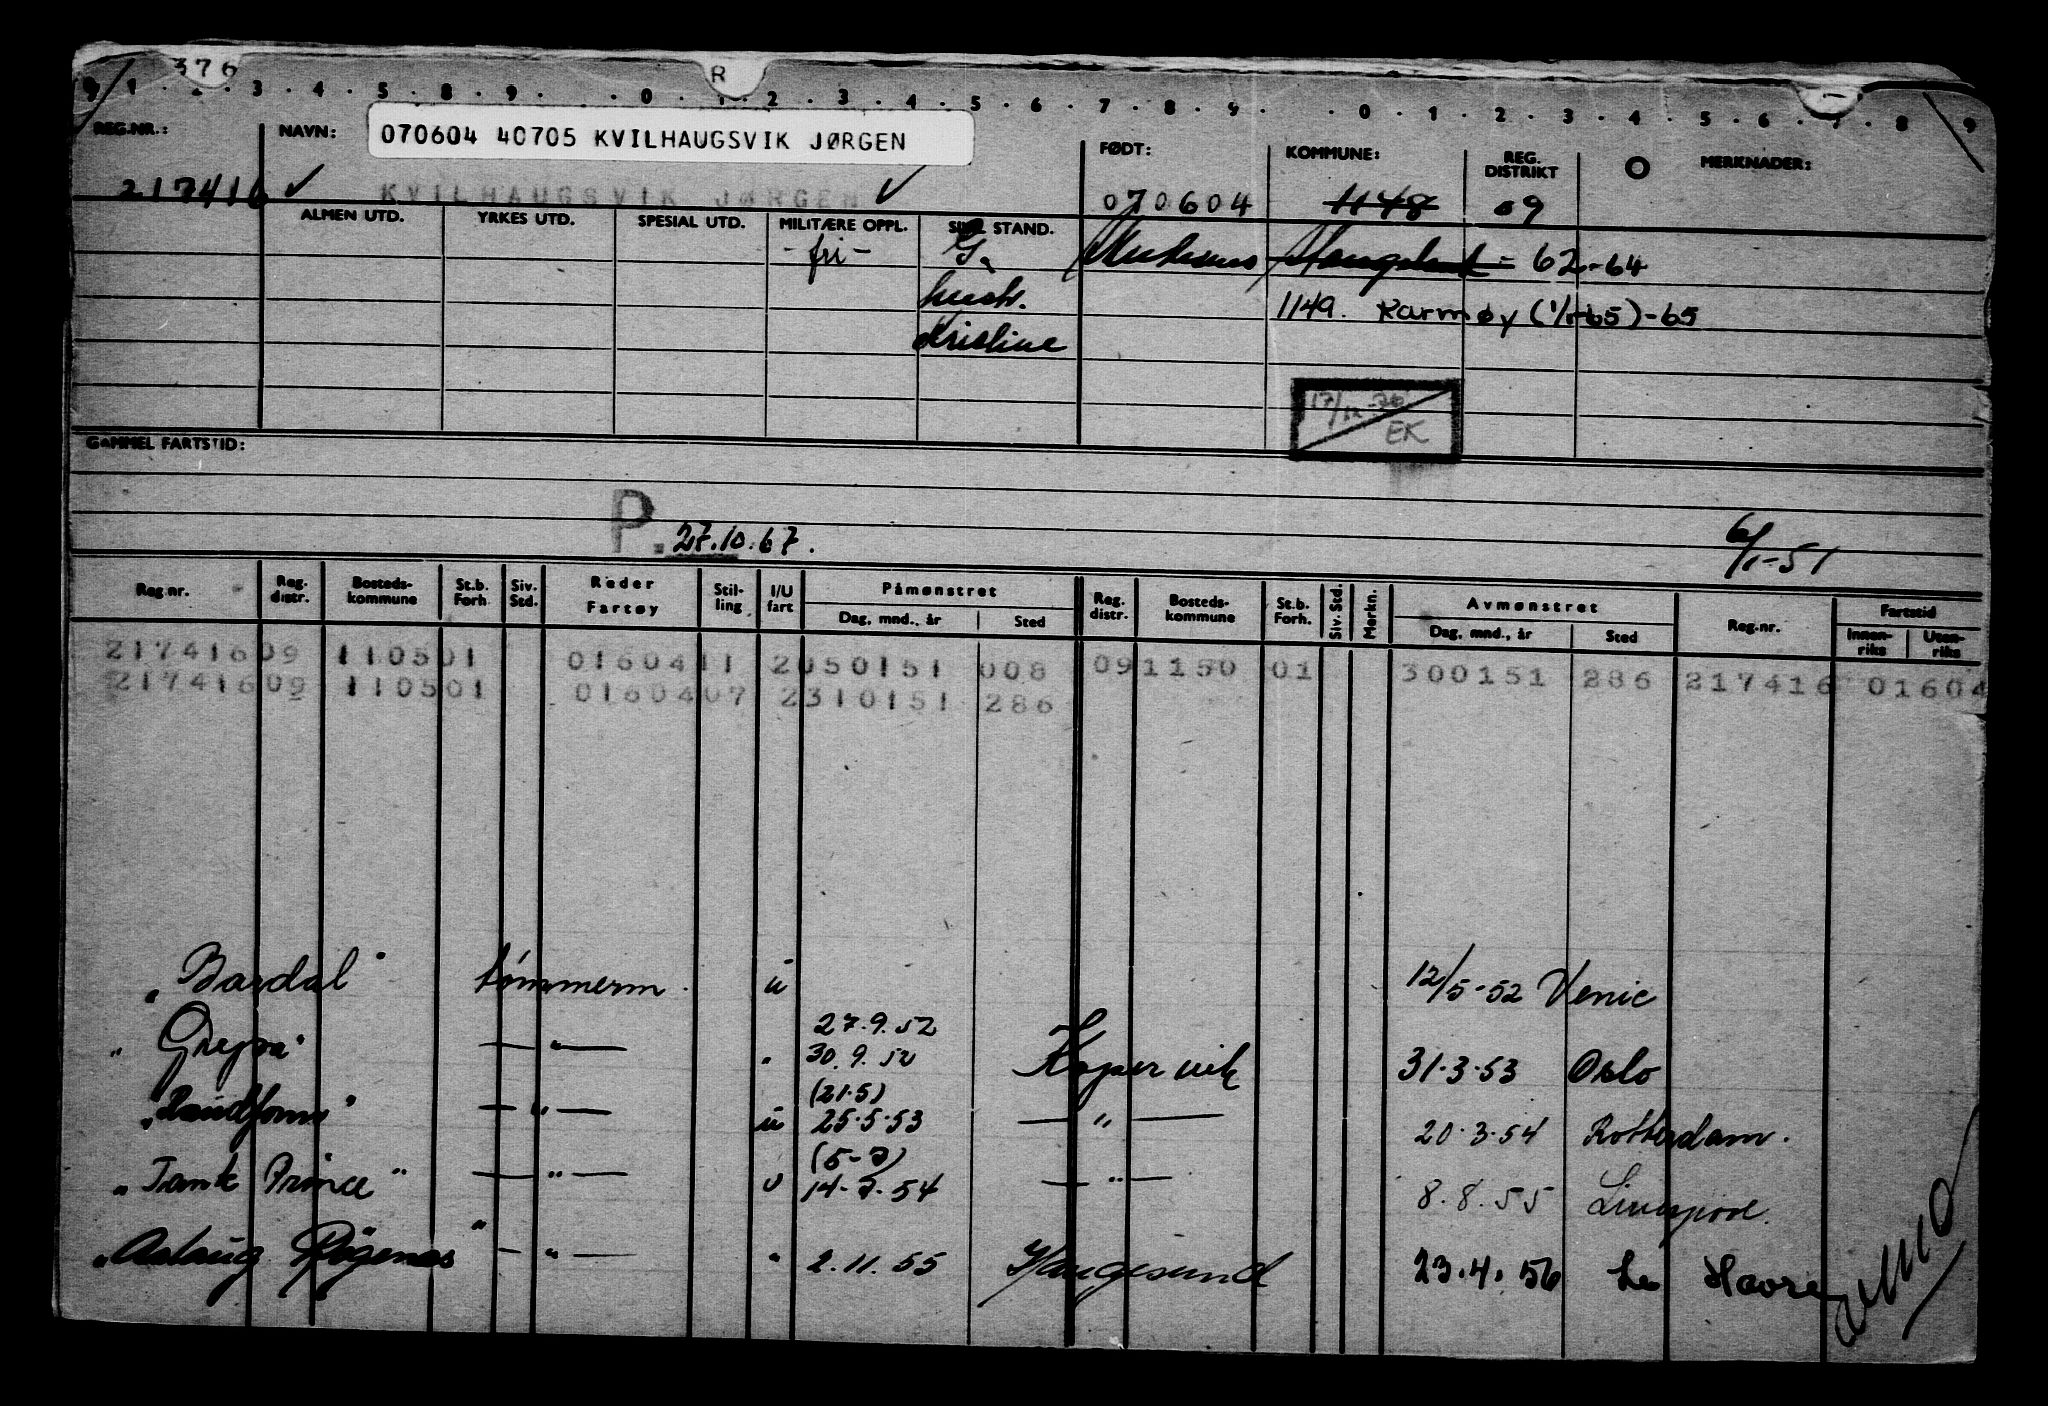 376 R
9 1 2 3 4 5 8 9 0 1 2 3 4 5 6 7 8 9 0 1 2 3 4 5 6 7 8 9
REG.NR.: NAVN: 070604 40705 KVILHAUGSVIK JØRGEN FØDT: KOMMUNE: REG. DISTRIKT O MERKNADER:
217416 ✓ KVILHAUGSVIK JØRGEN ✓ 070604 1148 09
ALMEN UTD. YRKES UTD. SPESIAL UTD. MILITÆRE OPPL. SIVIL STAND.
-fri- G. = 62-64
hustr. 1149. Karmøy (1/1-65)-65
Kristine
17/12-76
EK
GAMMEL FARTSTID:
P. 27.10.67.
6/1-51
Reg.nr. Reg. distr. Bosteds-kommune St.b. Forh. Siv. Std. Reder Fartøy Stil-ling I/U fart Påmønstret Dag, mnd., år Sted Reg. distr. Bosteds-kommune St.b. Forh. Siv. Std. Merkn. Avmønstret Dag, mnd., år Sted Reg.nr. Fartstid Innen-riks Uten-riks
21741609 110501 0160411 2050151 008 091150 01 300151 286 217416 01604
21741609 110501 0160407 2310151 286
"Bardal" tømmerm. u 12/5-52 Venic
27.9.52
"Grepa" — " — " 30.9.52 Kopervik 31.3.53 Oslo
(21.5)
"Randfonn" — " — u 25.5.53 — " — 20.3.54 Rotterdam.
(5-7)
"Tank Prince" — " — u 14-7-54 — " — 8.8.55 Liverpool.
"Aslaug Røgenæs" — " — " 2.11.55 Haugesund 23.4.56 Le Havre